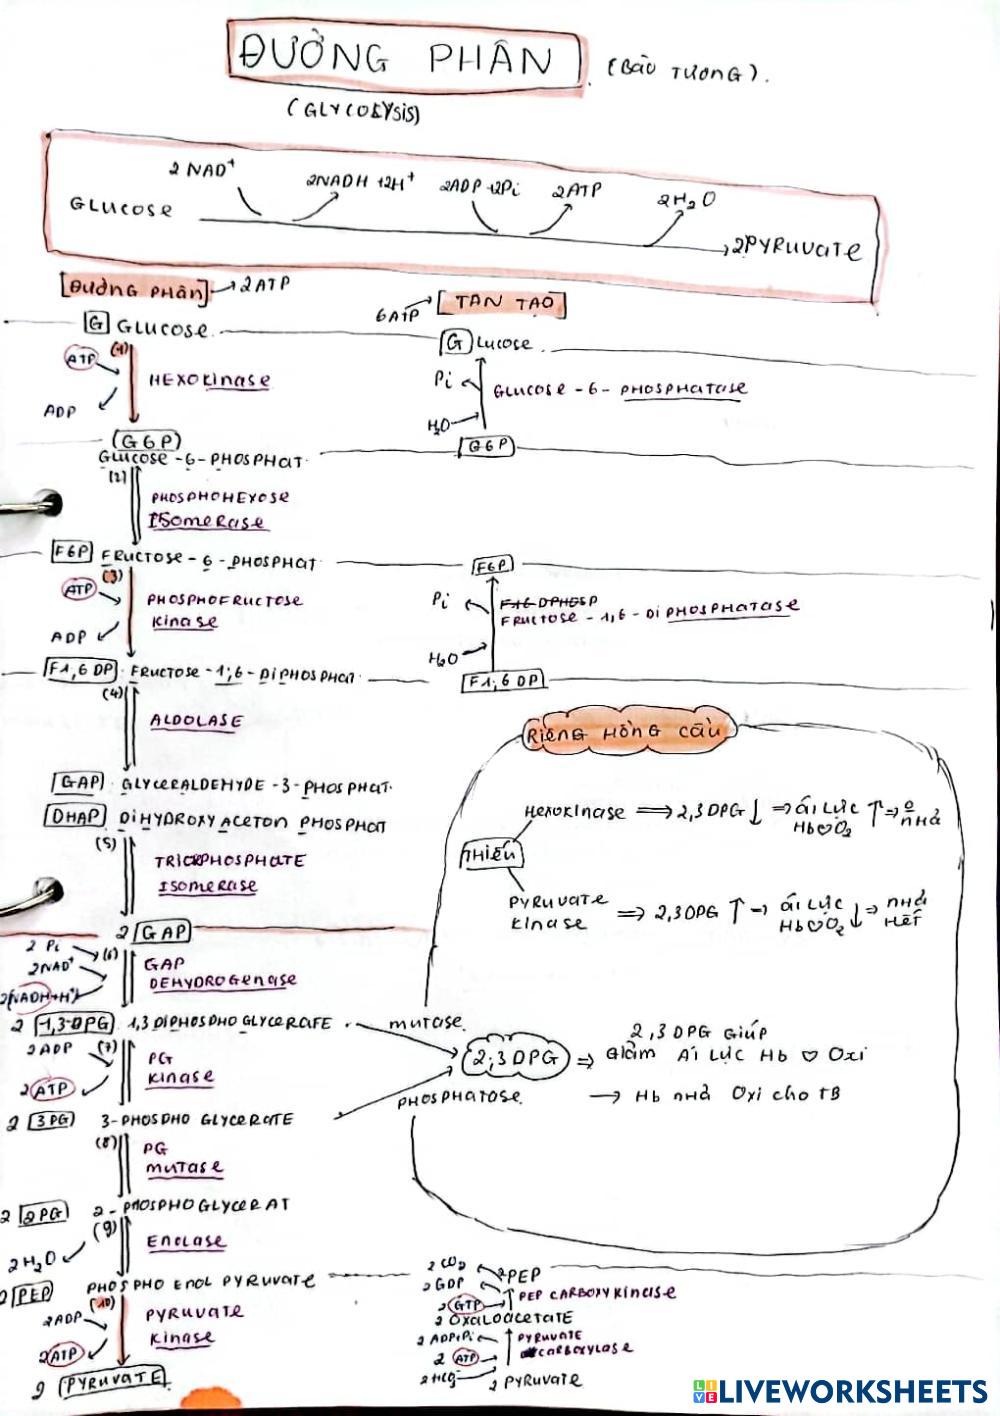 ĐƯỜNG PHÂN (BÀO TƯƠNG).
(GLYCOLYSIS)
2 NAD+ 2NADH +2H+ 2ADP +2Pi 2ATP 2H2O
GLUCOSE 2PYRUVATE
[ĐƯỜNG PHÂN] → 2 ATP
6ATP [TÂN TẠO]
G GLUCOSE.
G LUCOSE.
ATP (1)
HEXOKINASE
ADP
Pi GLUCOSE - 6 - PHOSPHATASE
H2O
(G6P)
G6P
GLUCOSE - 6 - PHOSPHAT.
(2)
PHOSPHOHEXOSE
ISOMERASE
F6P FRUCTOSE - 6 - PHOSPHAT
F6P
(3)
ATP
PHOSPHOFRUCTOSE
KINASE
ADP
Pi F1,6 DPHOSP
FRUCTOSE - 1,6 - DIPHOSPHATASE
H2O
F1,6 DP FRUCTOSE - 1;6 - DIPHOSPHAT
F1;6 DP
(4)
ALDOLASE
GAP GLYCERALDEHYDE - 3 - PHOSPHAT.
DHAP DIHYDROXY ACETON PHOSPHAT
(5)
TRIOSPHOSPHATE
ISOMERASE
2 GAP
2 Pi (6)
2NAD+
2(NADH+H+)
GAP
DEHYDROGENASE
2 1,3-DPG 1,3 DIPHOSPHO GLYCERATE
2 ADP (7)
2 ATP
PG
KINASE
2 3PG 3-PHOSPHO GLYCERATE
(8)
PG
MUTASE
2 2PG 2-PHOSPHOGLYCERAT
(9)
2H2O
ENOLASE
2 PEP PHOSPHO ENOL PYRUVATE
(10)
2ADP
2ATP
PYRUVATE
KINASE
2 PYRUVATE
RIÊNG HỒNG CẦU
THIẾU
HEXOKINASE ⟹ 2,3 DPG ↓ ⟹ ÁI LỰC Hb♡O2 ↑ ⟹ 0 NHẢ
PYRUVATE KINASE ⟹ 2,3 DPG ↑ → ÁI LỰC Hb♡O2 ↓ ⟹ NHẢ HẾT
MUTASE
2,3 DPG
PHOSPHATASE.
2,3 DPG GIÚP
⟹ GIẢM ÁI LỰC Hb ♡ OXI
→ Hb NHẢ OXI CHO TB
2 CO2 2PEP
2 GDP
2 GTP PEP CARBOXYKINASE
2 OXALOACETATE
2 ADP+Pi PYRUVATE
2 ATP CARBOXYLASE
2 PYRUVATE
LIVEWORKSHEETS